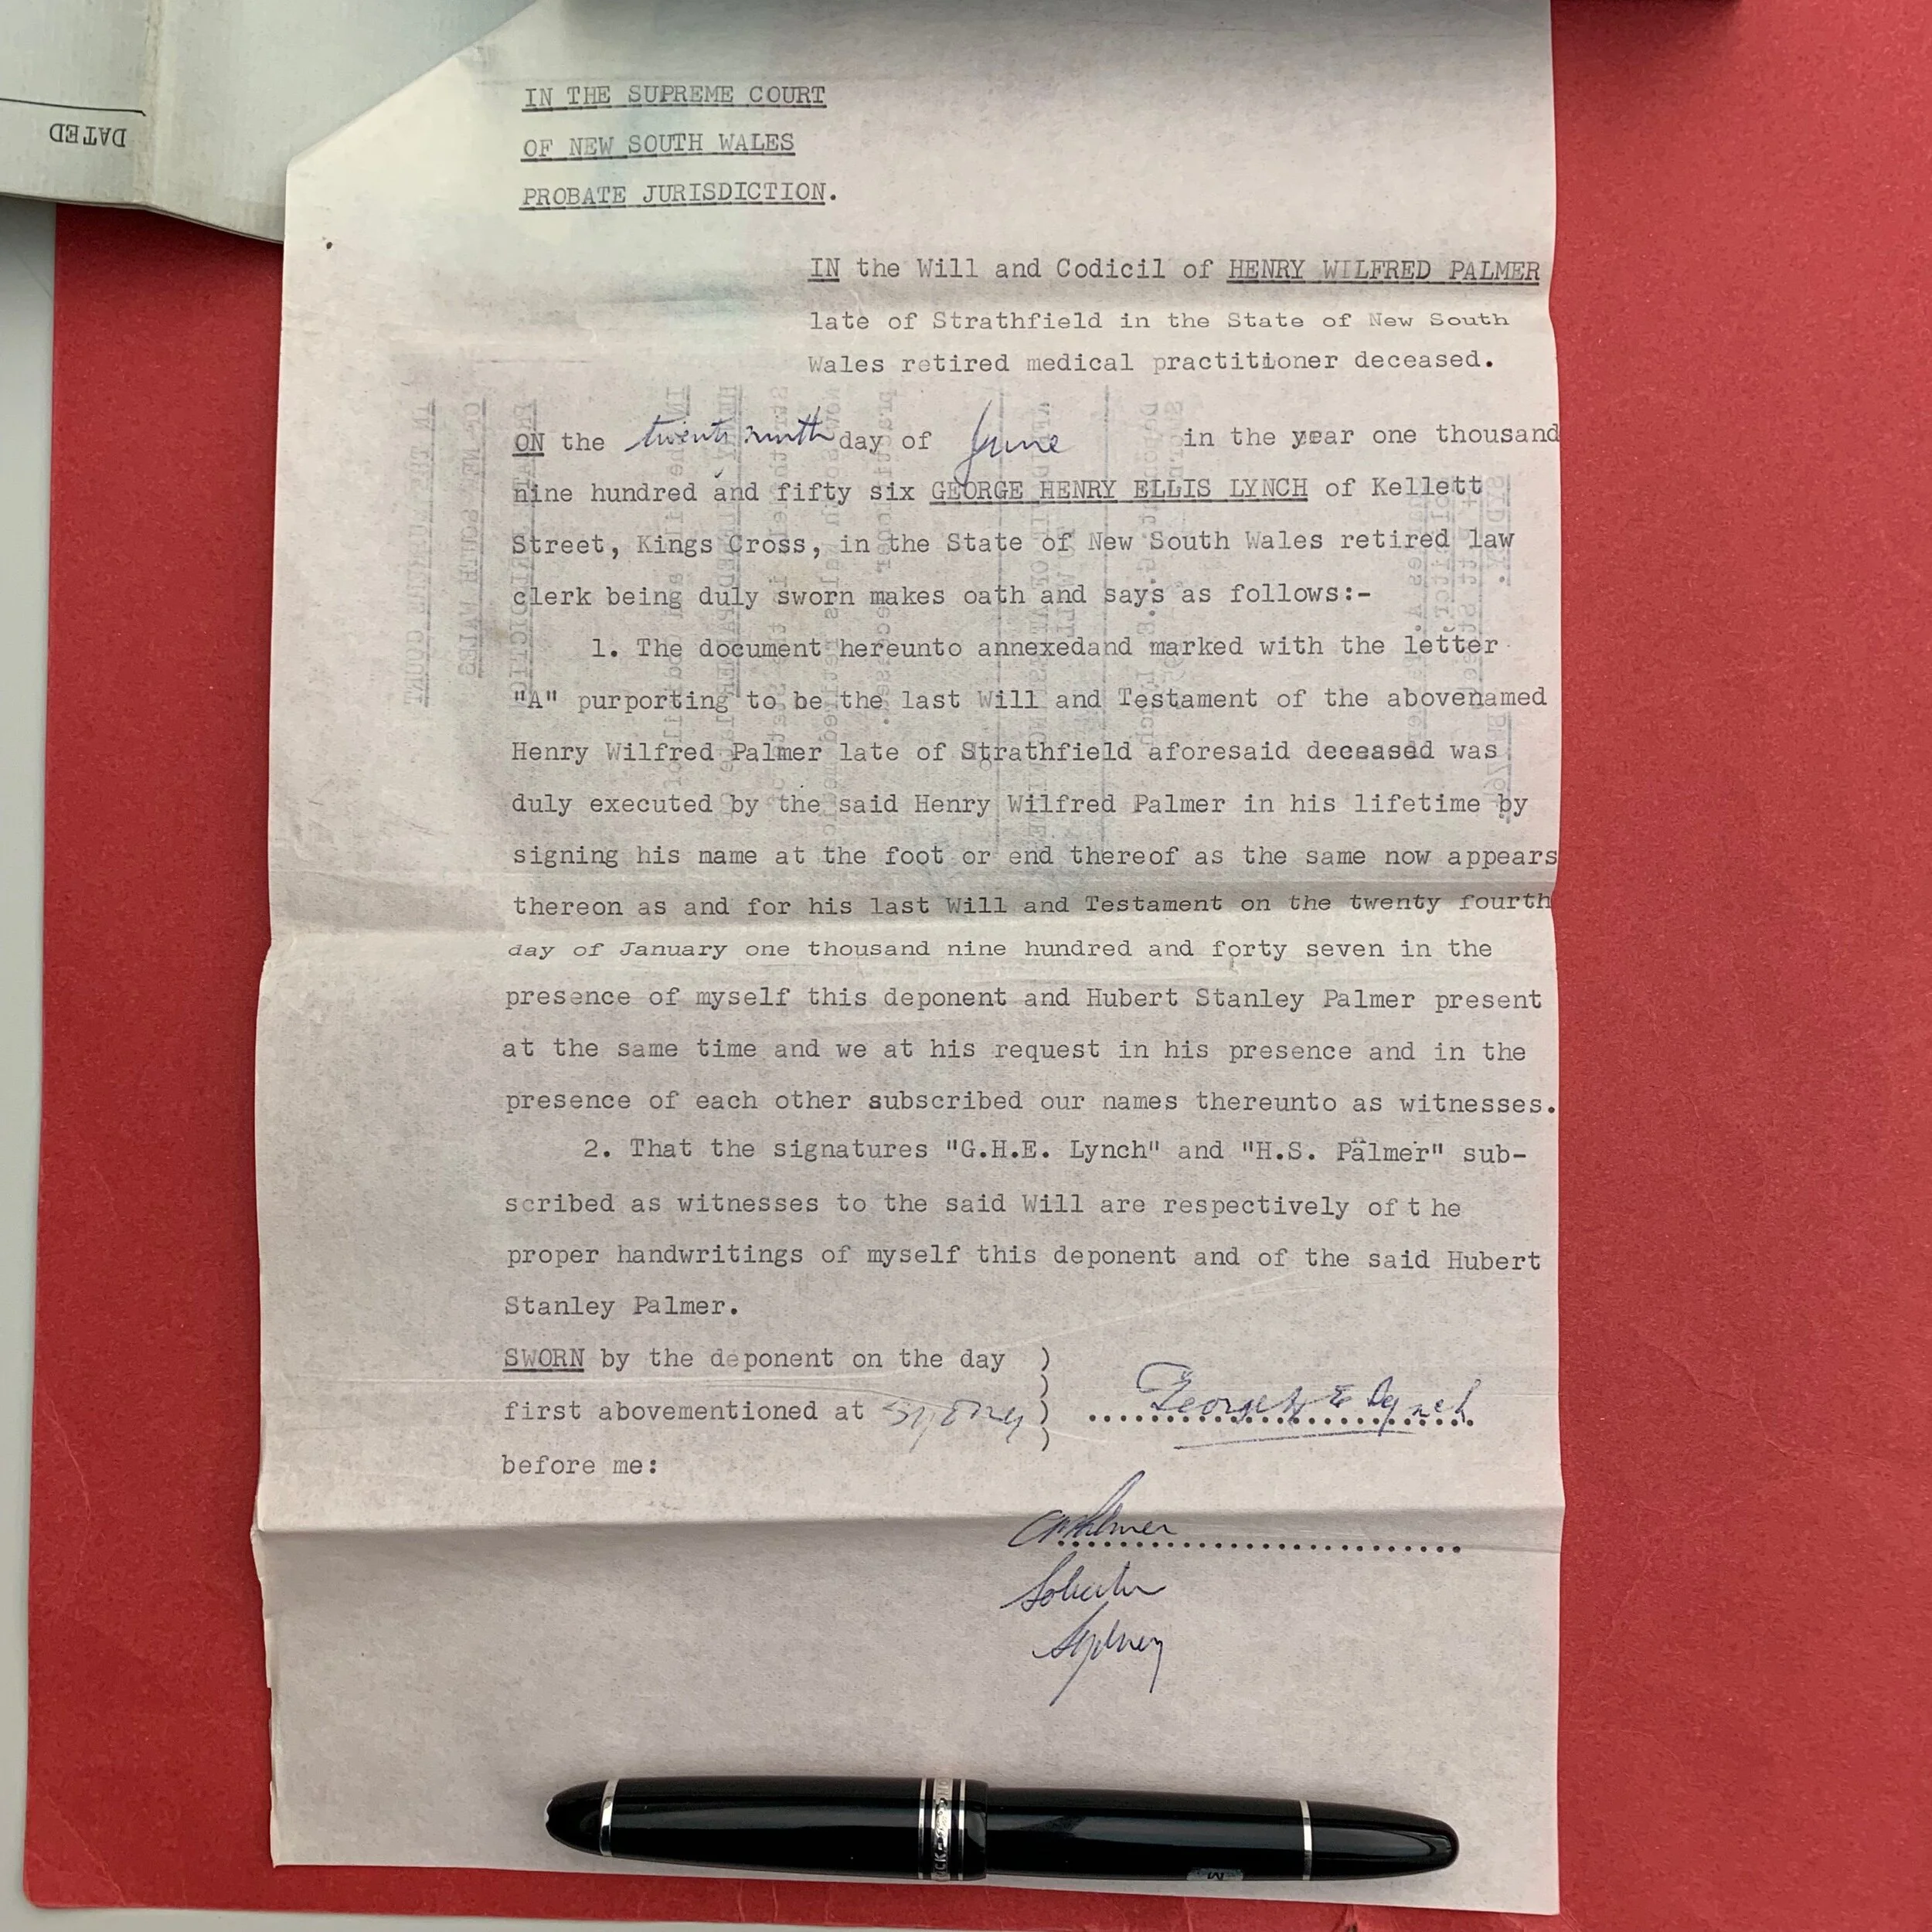 DATED
IN THE SUPREME COURT
OF NEW SOUTH WALES
PROBATE JURISDICTION.
IN the Will and Codicil of HENRY WILFRED PALMER
late of Strathfield in the State of New South
Wales retired medical practitioner deceased.
ON the twenty ninth day of June in the year one thousand
nine hundred and fifty six GEORGE HENRY ELLIS LYNCH of Kellett
Street, Kings Cross, in the State of New South Wales retired law
clerk being duly sworn makes oath and says as follows:-
1. The document hereunto annexedand marked with the letter
"A" purporting to be the last Will and Testament of the abovenamed
Henry Wilfred Palmer late of Strathfield aforesaid deceased was
duly executed by the said Henry Wilfred Palmer in his lifetime by
signing his name at the foot or end thereof as the same now appears
thereon as and for his last Will and Testament on the twenty fourth
day of January one thousand nine hundred and forty seven in the
presence of myself this deponent and Hubert Stanley Palmer present
at the same time and we at his request in his presence and in the
presence of each other subscribed our names thereunto as witnesses.
2. That the signatures "G.H.E. Lynch" and "H.S. Palmer" sub-
scribed as witnesses to the said Will are respectively of t he
proper handwritings of myself this deponent and of the said Hubert
Stanley Palmer.
SWORN by the deponent on the day )
first abovementioned at Sydney ) George H E Lynch
before me:
Palmer
Solicitor
Sydney